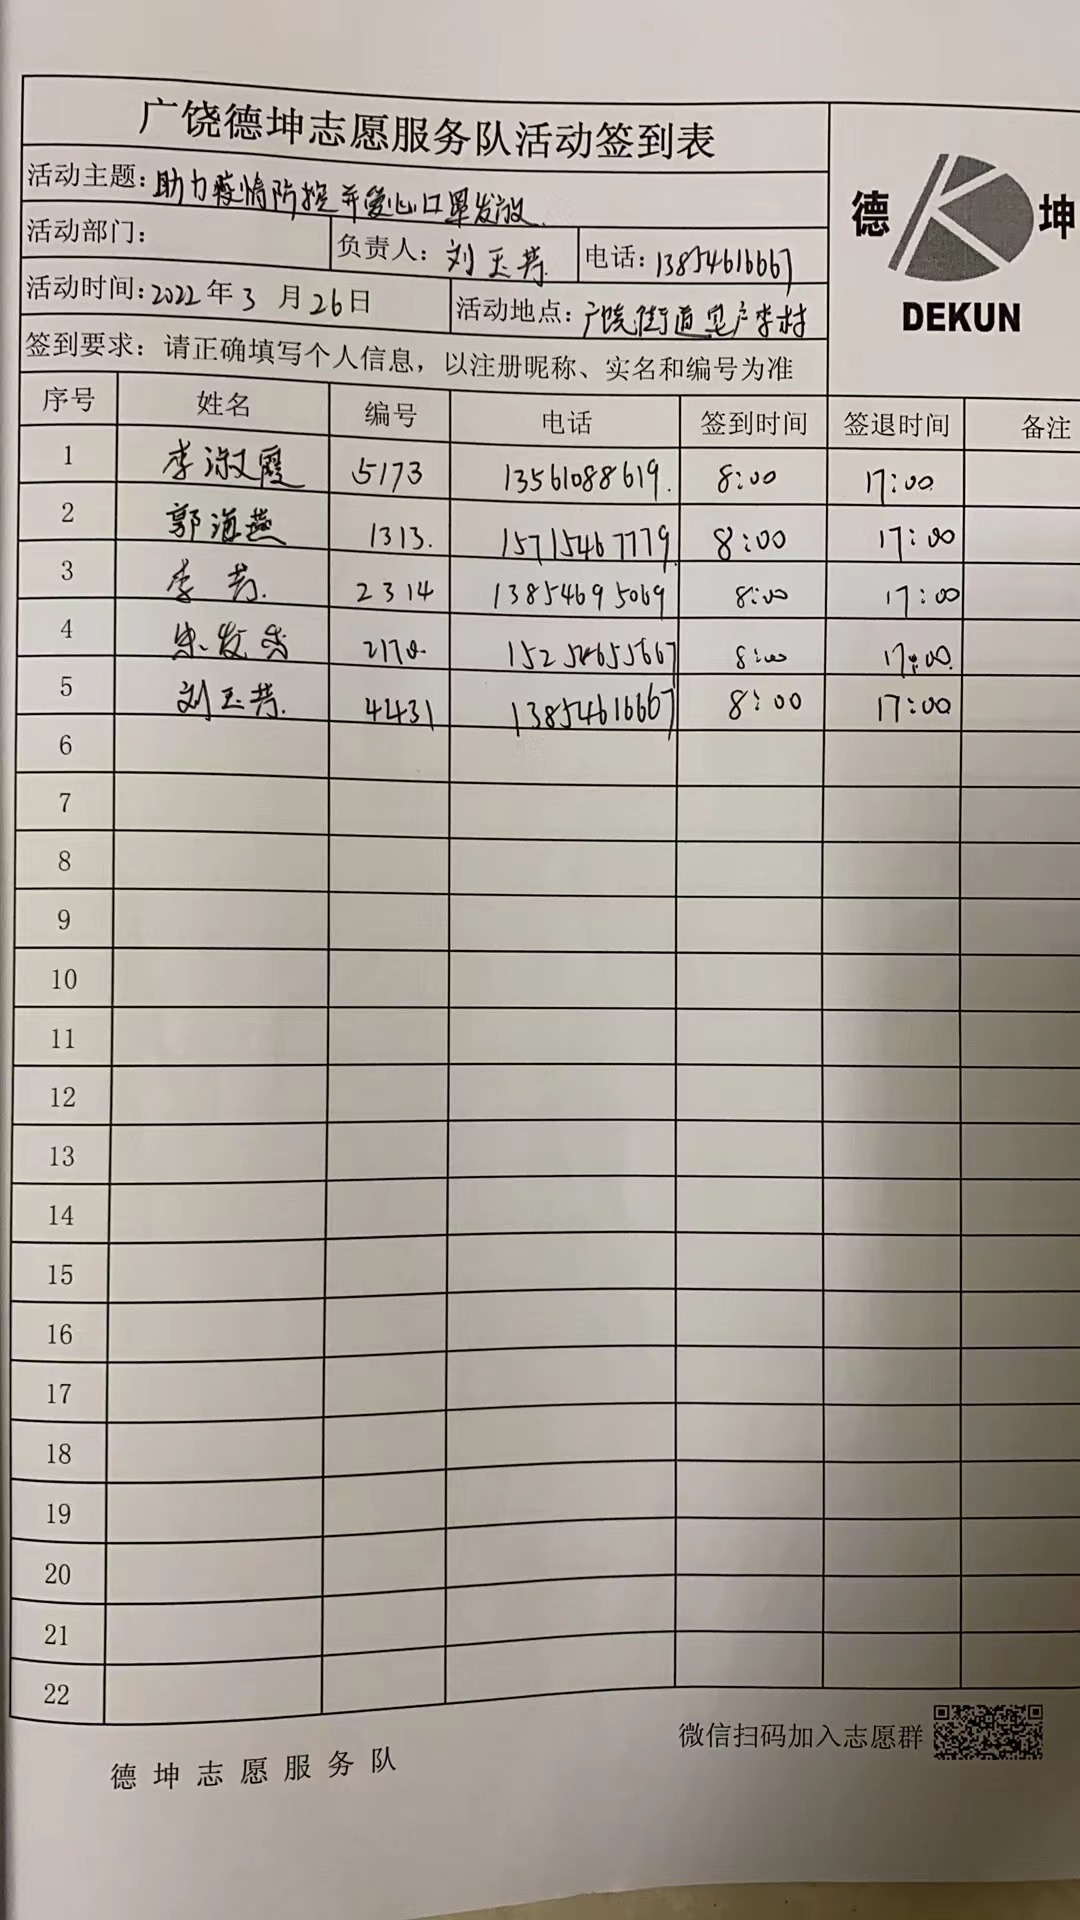 广饶德坤志愿服务队活动签到表
德 坤
DEKUN
活动主题：助力疫情防控并爱心口罩发放
活动部门： 负责人：刘玉芳 电话：13854616667
活动时间：2022年3月26日 活动地点：广饶街道 户李村
签到要求：请正确填写个人信息，以注册昵称、实名和编号为准
序号 姓名 编号 电话 签到时间 签退时间 备注
1 李淑霞 5173 13561088619. 8:00 17:00
2 郭海燕 1313. 15715467779 8:00 17:00
3 李芳. 2314 13854695069 8:00 17:00
4 8:00 17:00.
5 刘玉芳. 4431 13854616667 8:00 17:00
6
7
8
9
10
11
12
13
14
15
16
17
18
19
20
21
22
微信扫码加入志愿群
德坤志愿服务队